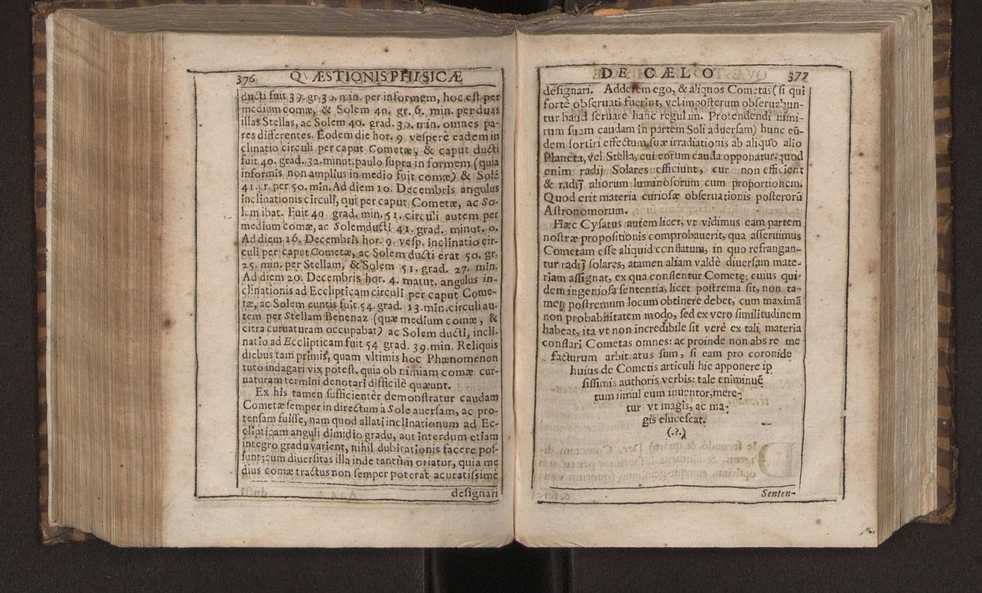 376 QVÆSTIONIS PHISICÆ
ducti fuit 39. gr. 30. min. per informem, hoc est per
medium comæ, & Solem 40. gr. 6. min. per duas
illas Stellas, ac Solem 40. grad. 30. min. omnes pa-
res differentes. Eodem die hor. 9. vespere eadem in
clinatio circuli per caput Cometæ, & caput ducti
fuit 40. grad. 32. minut. paulo supra informem (quia
informis non amplius in medio fuit comæ) & Solẽ
41. gr. per 50. min. Ad diem 10. Decembris angulus
inclinationis circuli, qui per caput Cometæ, ac So-
lem ibat. Fuit 40 grad. min. 51. circuli autem per
medium comæ, ac Solem ducti 41. grad. minut. 0.
Ad diem 16. Decembris hor. 9. vesp. inclinatio cir-
culi per caput Cometæ, ac Solem ducti erat 50. gr.
25. min. per Stellam, & Solem 51. grad. 27. min.
Ad diem 20. Decembris hor. 4. matut. angulus in-
clinationis ad Ecclipticam circuli per caput Come-
tæ, ac Solem euntis fuit 54. grad. 13. min. circuli au-
tem per Stellam Benenaz (quæ medium comæ, &
citra curuaturam occupabat) ac Solem ducti, incli-
natio ad Ecclipticam fuit 54 grad. 39. min. Reliquis
diebus tam primis, quam vltimis hoc Phænomenon
tuto indagari vix potest, quia ob nimiam comæ cur-
uaturam termini denotari difficilè queunt.
Ex his tamen sufficientèr demonstratur caudam
Cometæ semper in directum à Sole auersam, ac pro-
tensam fuisse, nam quod allati inclinationum ad Ec-
clipticam anguli dimidio gradu, aut interdum etiam
integro gradu varient, nihil dubitationis facere pos-
sunt, cum diuersitas illa inde tantùm oriatur, quia me
dius comæ tractus non semper poterat acuratissimè
designari
DE CÆLO 377
designari. Adderem ego, & aliquos Cometas (si qui
fortè obseruati fuerint, vel imposterum obseruabun-
tur haud seruare hanc regulam. Protendendi nimi-
rum suam caudam in partem Soli aduersam) hunc eũ-
dem sortiri effectum suæ irradiationis ab aliquo alio
Planeta, vel Stella, cui eorum cauda opponatur, quod
enim radij Solares efficiunt, cur non efficient
& radij aliorum luminosorum cum proportione.
Quod erit materia curiosæ obseruationis posterorũ
Astronomorum.
Hæc Cysatus autem licet, vt vidimus eam partem
nostræ propositionis comprobauerit, qua asseruimus
Cometam esse aliquid conflatum, in quo refrangan-
tur radij solares, atamen aliam valdè diuersam mate-
riam assignat, ex qua conflentur Cometę; cuius qui-
dem ingeniosa sententia, licet postrema sit, non ta-
men postremum locum obtinere debet, cum maximã
non probabilitatem modo, sed ex vero similitudinem
habeat, ita vt non incredibile sit verè ex tali materia
conflari Cometas omnes: ac proinde non abs re me
facturum arbitratus sum, si eam pro coronide
huius de Cometis articuli hic apponere ip
sissimis authoris verbis: tale enim inuẽ
tum simul cum inuentor, mere-
tur vt magis, ac ma-
gis elucescat.
(.?.)
Senten-